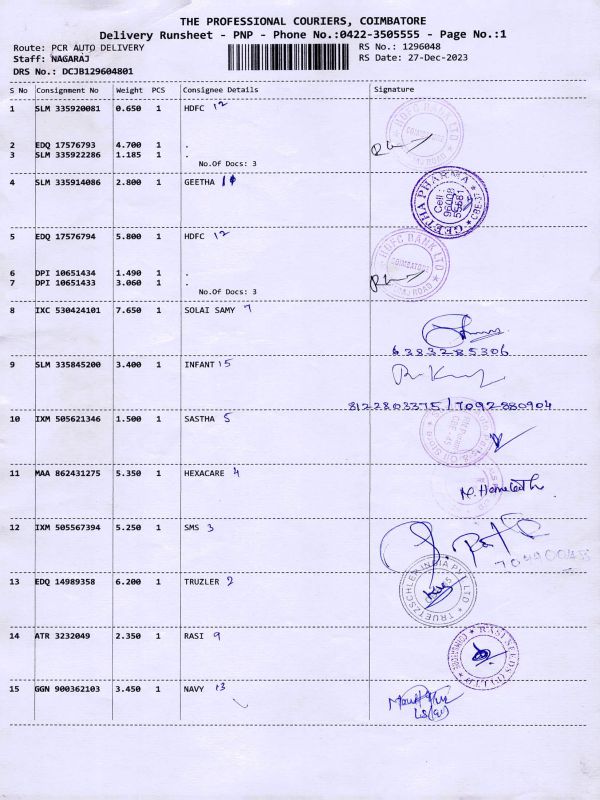 THE PROFESSIONAL COURIERS, COIMBATORE
Delivery Runsheet - PNP - Phone No.:0422-3505555 - Page No.:1
Route: PCR AUTO DELIVERY
RS No.: 1296048
Staff: NAGARAJ
RS Date: 27-Dec-2023
DRS No.: DCJB129604801
S No Consignment No Weight PCS Consignee Details Signature
1 SLM 335920081 0.650 1 HDFC 12
HDFC BANK LTD
2 EDQ 17576793 4.700 1 .
3 SLM 335922286 1.185 1 .
No.Of Docs: 3
4 SLM 335914086 2.800 1 GEETHA
GEETHA PHARMA CBE
Cell :
5 EDQ 17576794 5.800 1 HDFC 12
HDFC BANK LTD
COIMBATORE
6 DPI 10651434 1.490 1 .
7 DPI 10651433 3.060 1 .
No.Of Docs: 3
8 IXC 530424101 7.650 1 SOLAI SAMY 7
6383285306
9 SLM 335845200 3.400 1 INFANT 15
8122803375 / 7092880904
10 IXM 505621346 1.500 1 SASTHA 5
11 MAA 862431275 5.350 1 HEXACARE 4
12 IXM 505567394 5.250 1 SMS 3
13 EDQ 14989358 6.200 1 TRUZLER 2
TRUETZSCHLER INDIA PVT LTD
14 ATR 3232049 2.350 1 RASI 9
RASI SEEDS (P) LTD
15 GGN 900362103 3.450 1 NAVY 13